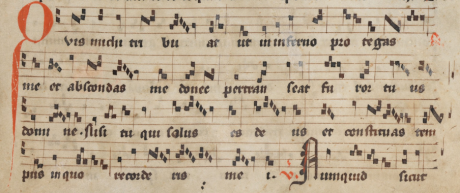 Quis michi tri bu at ut in inferno pro te gas
me et abscondas me donec pertran seat fu ror tu us
domi ne. si si tu qui solus es de us et constituas tem
pus in quo recorde ris me i. V. Numquid sicut